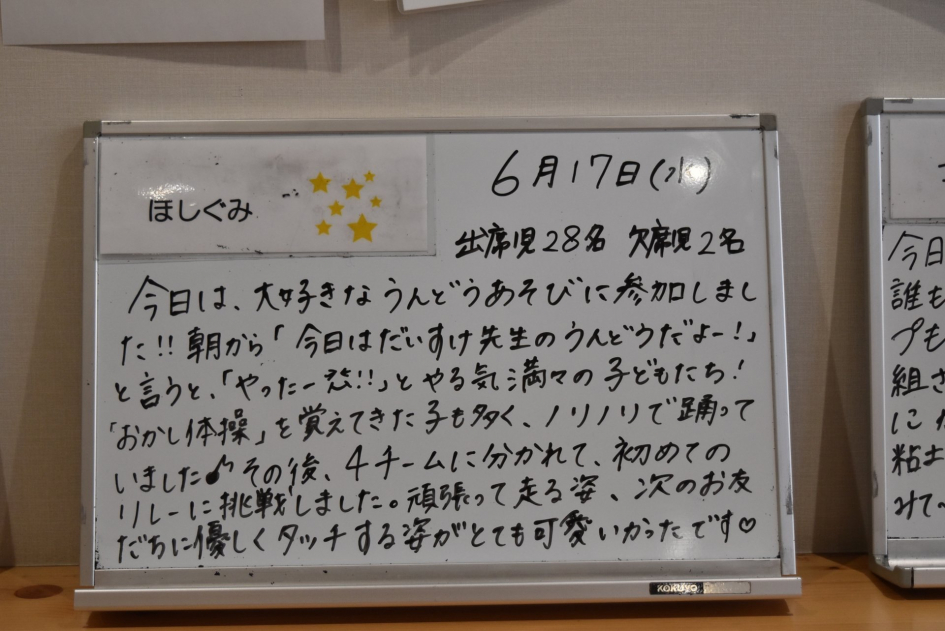 ほしぐみ
6月17日(水)
出席児28名 欠席児2名
今日は、大好きなうんどうあそびに参加しまし
た!!朝から「今日はだいすけ先生のうんどうだよー!」
と言うと、「やったー!!」とやる気満々の子どもたち!
「おかし体操」を覚えてきた子も多く、ノリノリで踊って
いました♪その後、4チームに分かれて、初めての
リレーに挑戦しました。頑張って走る姿、次のお友
だちに優しくタッチする姿がとても可愛いかったです♡
KOKUYO
今日
誰も
プも
組さ
に
粘土
みて